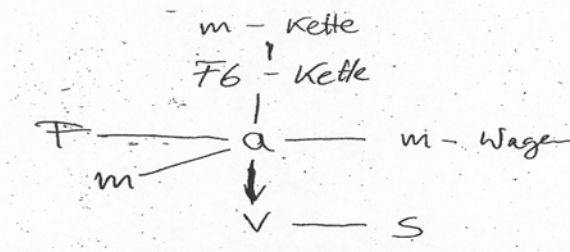 m - Kette
FG - Kette
F a m - Wagen
m
V S